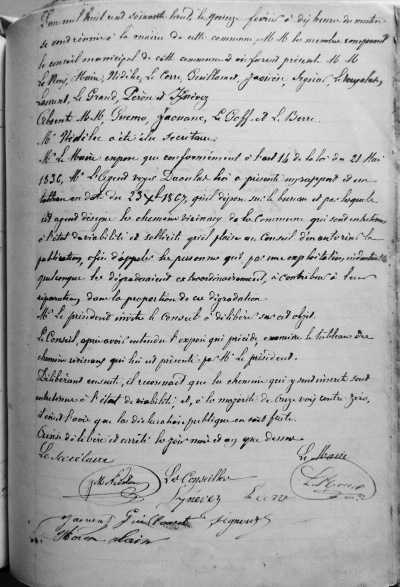 L'an mil huit cent soixante huit, le quinze février à dix heures du matin
se sont réunis à la mairie de cette commune, M M les membres composant
le conseil municipal de cette commune où furent présents M M
Le Hars, Alain Nédélec, Le Corre, Guillamet, Le
Laurent, Le Grand, Péron et Quéméré
Absents M.M. Jaouanc, Le Goff et Le Berre.
Mr Nédélec a été élu secrétaire.
Mr Le Maire expose que conformément à l'art 14 de la loi du 21 Mai
1836, Mr L'Agent voyer Daoulas lui a présenté un rapport et un
tableau en date du 23 Xbre 1867, qu'il dépose sur le bureau et par lequels
cet agent désigne les chemins vicinaux de la Commune qui sont entretenus
à l'état de viabilité et sollicite qu'il plaise au Conseil d'en autoriser la
publication, afin d'appeler les personnes qui par une exploitation
quelconque les dégraderaient extraordinairement, à contribuer à leur
réparation, dans la proportion de ces dégradations.
Mr Le président invite le Conseil à délibérer sur cet objet.
Le Conseil, après avoir entendu l'exposé qui précède, examiné le tableau des
chemins vicinaux qui lui est présenté par Mr Le président.
Délibérant ensuite, il reconnait que les chemins qui y sont inscrits sont
entretenus à l'état de viabilité, et, à la majorité de onze voix contre zéro,
il émet l'avis que la déclaration publique en soit faite.
Ainsi délibéré et arrêté les jour mois et an que dessus
Le Secrétaire Le Maire
Les Conseillers